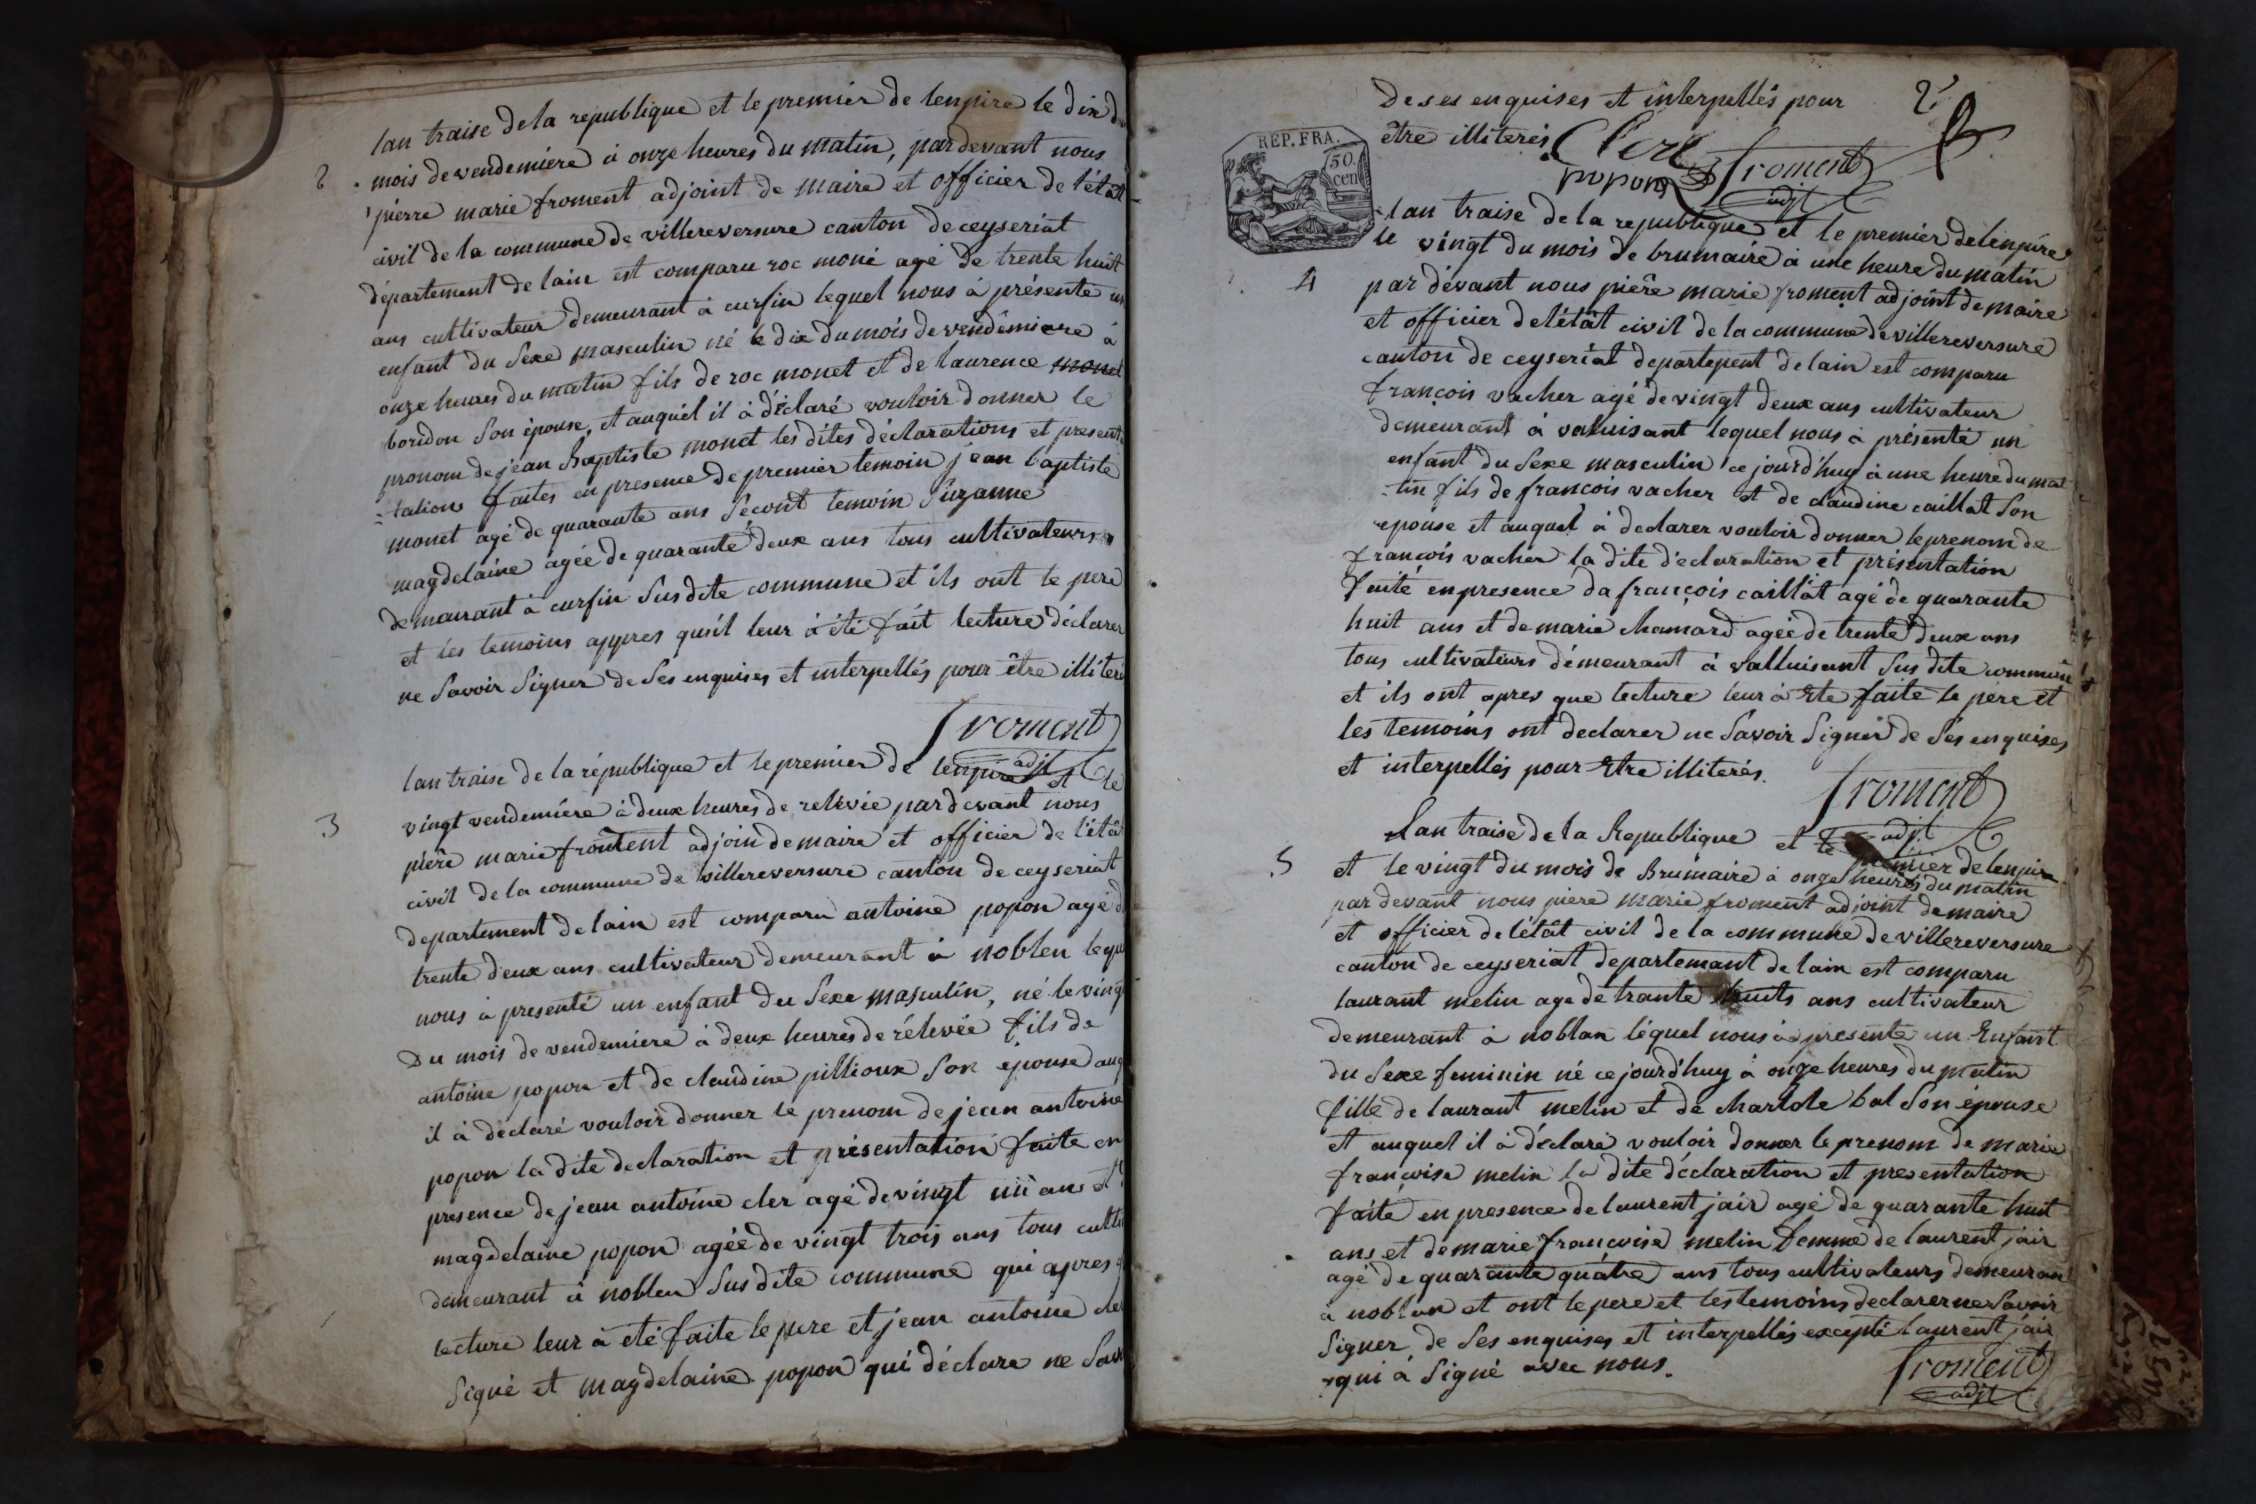 lan traise de la republique et le premier de lenpire le dix du
2
mois de vendemiere à onze heures du matin, pardevant nous
pierre marie froment adjoint de maire et officier de l'état
civil de la commune de villereversure canton de ceyseriat
département de lain est comparu roc moné agé de trente huit
ans cultivateur demeurant à curfin lequel nous à présenté un
enfant du Sexe masculin né le dix du mois de vendémiere à
onze heures du matin fils de roc monet et de laurence monet
boridon Son épouse, et auquel il à déclaré vouloir donner le
pronom de jean Baptiste monet les dites déclarations et present
-tations faites en presence de premier temoin jean baptiste
monet agé de quarante ans Sécont temoin Suzanne
magdelaine agée de quarante deux ans tous cultivateurs
demeurant à curfin Susdite commune et ils ont le pere
et les temoins appres qu'il leur à été fait lecture déclarer
ne Savoir Signer de Ses enquises et interpellés pour être illiteré
froment
adjt
lan traise de la république et le premier de lenpire et le
3
vingt vendemiere à deux heures de relevée pardevant nous
pière marie froment adjoin de maire et officier de l'état
civil de la commune de villereversure canton de ceyseriat
departement de lain est comparu antoine popon agé d
trente deux ans cultivateur demeurant à noblen lequ
nous à presenté un enfant du Sexe masculin, né le ving
Du mois de vendemiere à deux heures de rélevée fils de
antoine popon et de claudine pillioux Son épouse auq
il à déclaré vouloir donner le prenom de jean antoine
popon la dite declaration et présentation faite en
presence de jean antoine cler agé de vingt ans et
magdelaine popon agée de vingt trois ans tous culti
demeurant à noblen Susdite commune qui apres q
lecture leur à eté faite le pere et jean antoine cler
Signé et magdelaine popon qui déclare ne Savo
De Ses enquises et interpellés pour
2
être illiterés Clerc
popon froment
adjt
REP. FRA.
50.
cen
lan traise de la republique et le premier de lenpire
le vingt du mois de brumaire à une heure du matin
4
par dévant nous pière marie froment adjoint de maire
et officier de létât civil de la commune de villereversure
canton de ceyseriat departepent de lain est comparu
françois vacher agé de vingt deux ans cultivateur
demeurant à valuisant lequel nous à présenté un
enfant du Sexe masculin ce jourd'huy à une heure du mat
-tin fils de francois vacher et de claudine caillat Son
epouse et auquel à declarer vouloir donner le prenom de
françois vacher la dite déclaration et présentation
faite en presence da françois caillat agé de quarante
huit ans et de marie chamard agée de trente deux ans
tous cultivateurs démeurant à valluisant Susdite commune
et ils ont apres que lecture leur à ete faite le pere et
les temoins ont declarer ne Savoir Signer de Ses enquises
et interpellés pour etre illiterés.
froment
adjt
Lan traise de la Republique et le premier de lenpire
5
et le vingt du mois de Brumaire à onze heures du matin
par devant nous piere marie froment adjoint de maire
et officier de l'étât civil de la commune de villereversure
canton de ceyseriat departemant de lain est comparu
laurant melin age de trante huits ans cultivateur
demeurant à noblan léquel nous à presente un Enfant
du Sexe feminin né ce jourd'huy à onze heures du matin
fille de laurant melin et de charlote bal Son épouse
et auquel il à déclaré vouloir donner le prenom de marie
françoise melin la dite déclaration et presentation
faite en presence de laurent jair agé de quarante huit
ans et de marie françoise melin femme de laurent jair
agé de quarante quatre ans tous cultivateurs demeurant
à noblan et ont le pere et les temoins declarer ne Savoir
Signer de Ses enquises et interpellés excepté laurent jair
qui à Signé avec nous.
froment
adjt